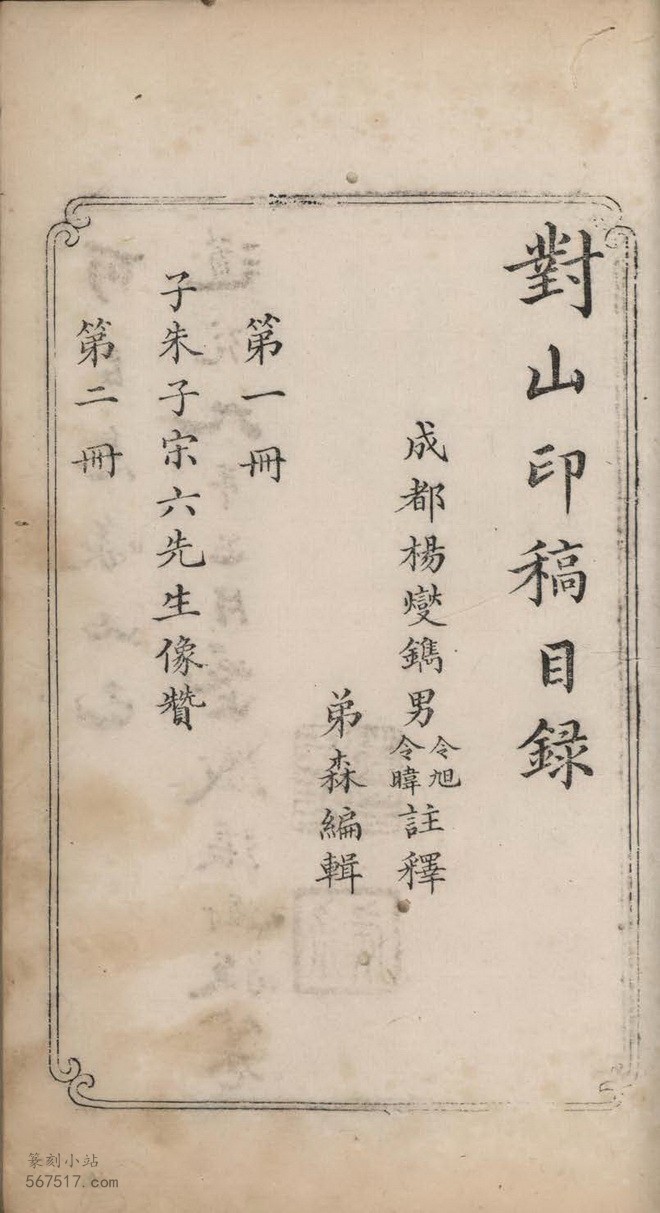 對山印稿目錄
成都楊燮鐫男令旭令暐註釋
弟森編輯
第一冊
子朱子宋六先生像贊
第二冊
篆刻小站
567517.com